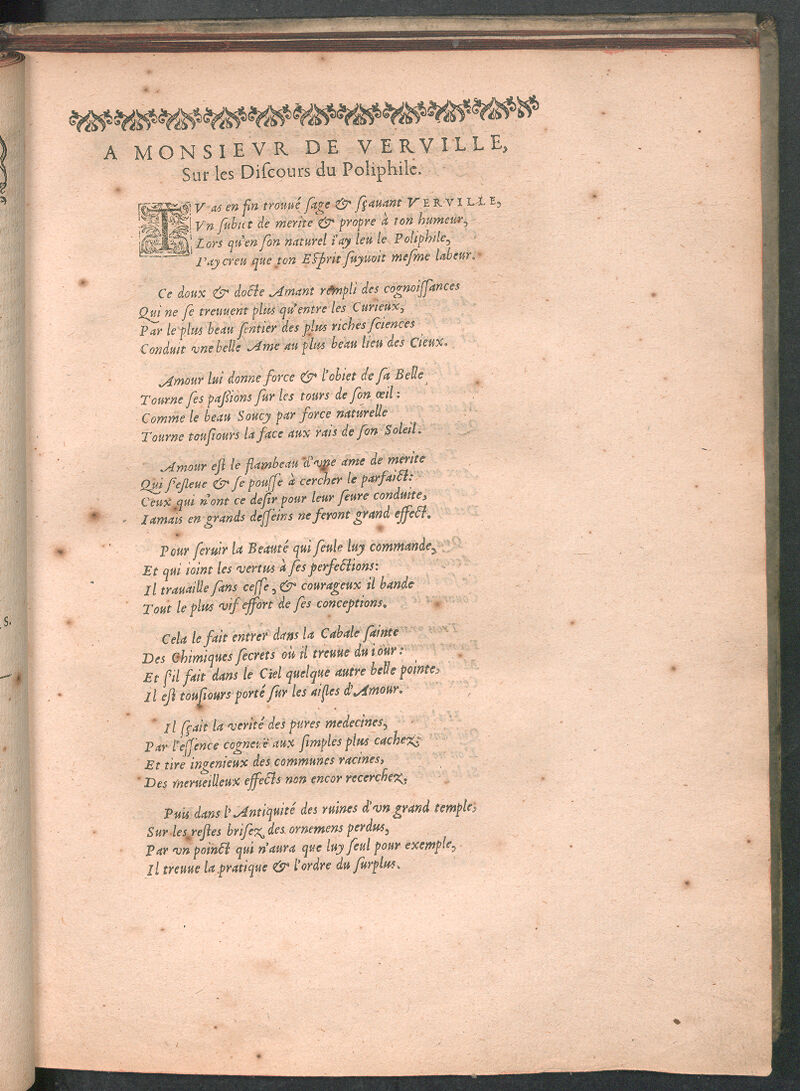 A MONSIEVR DE VERVILLE,
Sur les Diſcours du Poliphile.
TV as en fin trouué ſage & ſçauant VERVILLE,
Vn ſubiet de merite & propre à ton humeur,
Lors qu'en ſon naturel i'ay leu le Poliphile,
I'ay creu que ton Eſprit ſuyuoit meſme labeur.
Ce doux & docte Amant rempli des cognoiſſances
Qui ne ſe treuuent plus qu'entre les Curieux,
Par le plus beau ſentier des plus riches ſciences
Conduit vne belle Ame au plus beau lieu des Cieux.
Amour lui donne force & l'obiet de ſa Belle
Tourne ſes paſsions ſur les tours de ſon œil:
Comme le beau Soucy par force naturelle
Tourne touſiours la face aux rais de ſon Soleil.
Amour eſt le flambeau d'vne ame de merite
Qui s'eſleue & ſe pouſſe à cercher le parfaict:
Ceux qui n'ont ce deſir pour leur ſeure conduite,
Iamais en grands deſſeins ne feront grand effect.
Pour ſeruir la Beauté qui ſeule luy commande,
Et qui ioint les vertus à ſes perfections:
Il trauaille ſans ceſſe, & courageux il bande
Tout le plus vif effort de ſes conceptions.
Cela le fait entrer dans la Cabale ſainte
Des Chimiques ſecrets où il treuue du iour:
Et s'il fait dans le Ciel quelque autre belle pointe,
Il eſt touſiours porté ſur les aiſles d'Amour.
Il ſçait la verité des pures medecines,
Par l'eſſence cogneuë aux ſimples plus cachez,
Et tire ingenieux des communes racines,
Des merueilleux effects non encor recerchez,
Puis dans l'Antiquité des ruines d'vn grand temple,
Sur les reſtes briſez des ornemens perdus,
Par vn poinct qui n'aura que luy ſeul pour exemple,
Il treuue la pratique & l'ordre du ſurplus.
s.